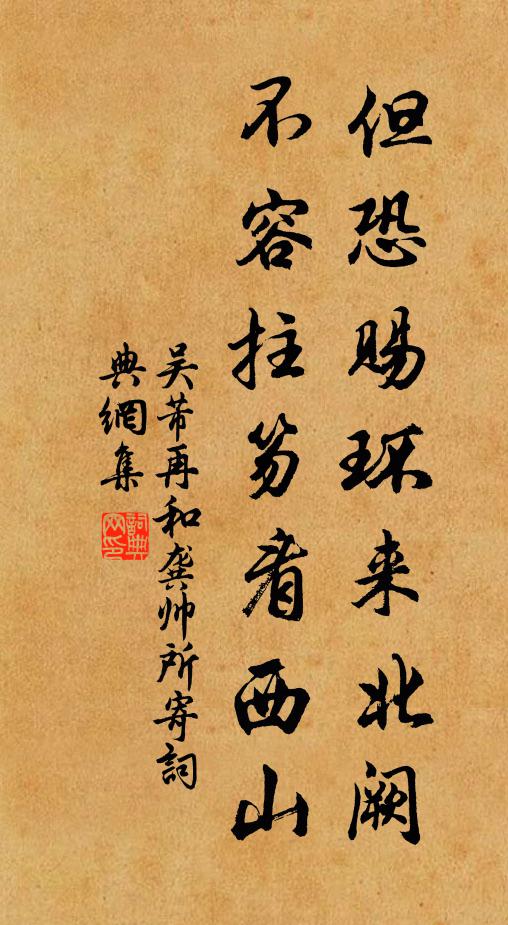 但恐赐环来北阙
不容拄笏看西山
吴芾再和龚帅所寄詞
典網集
詞典网印